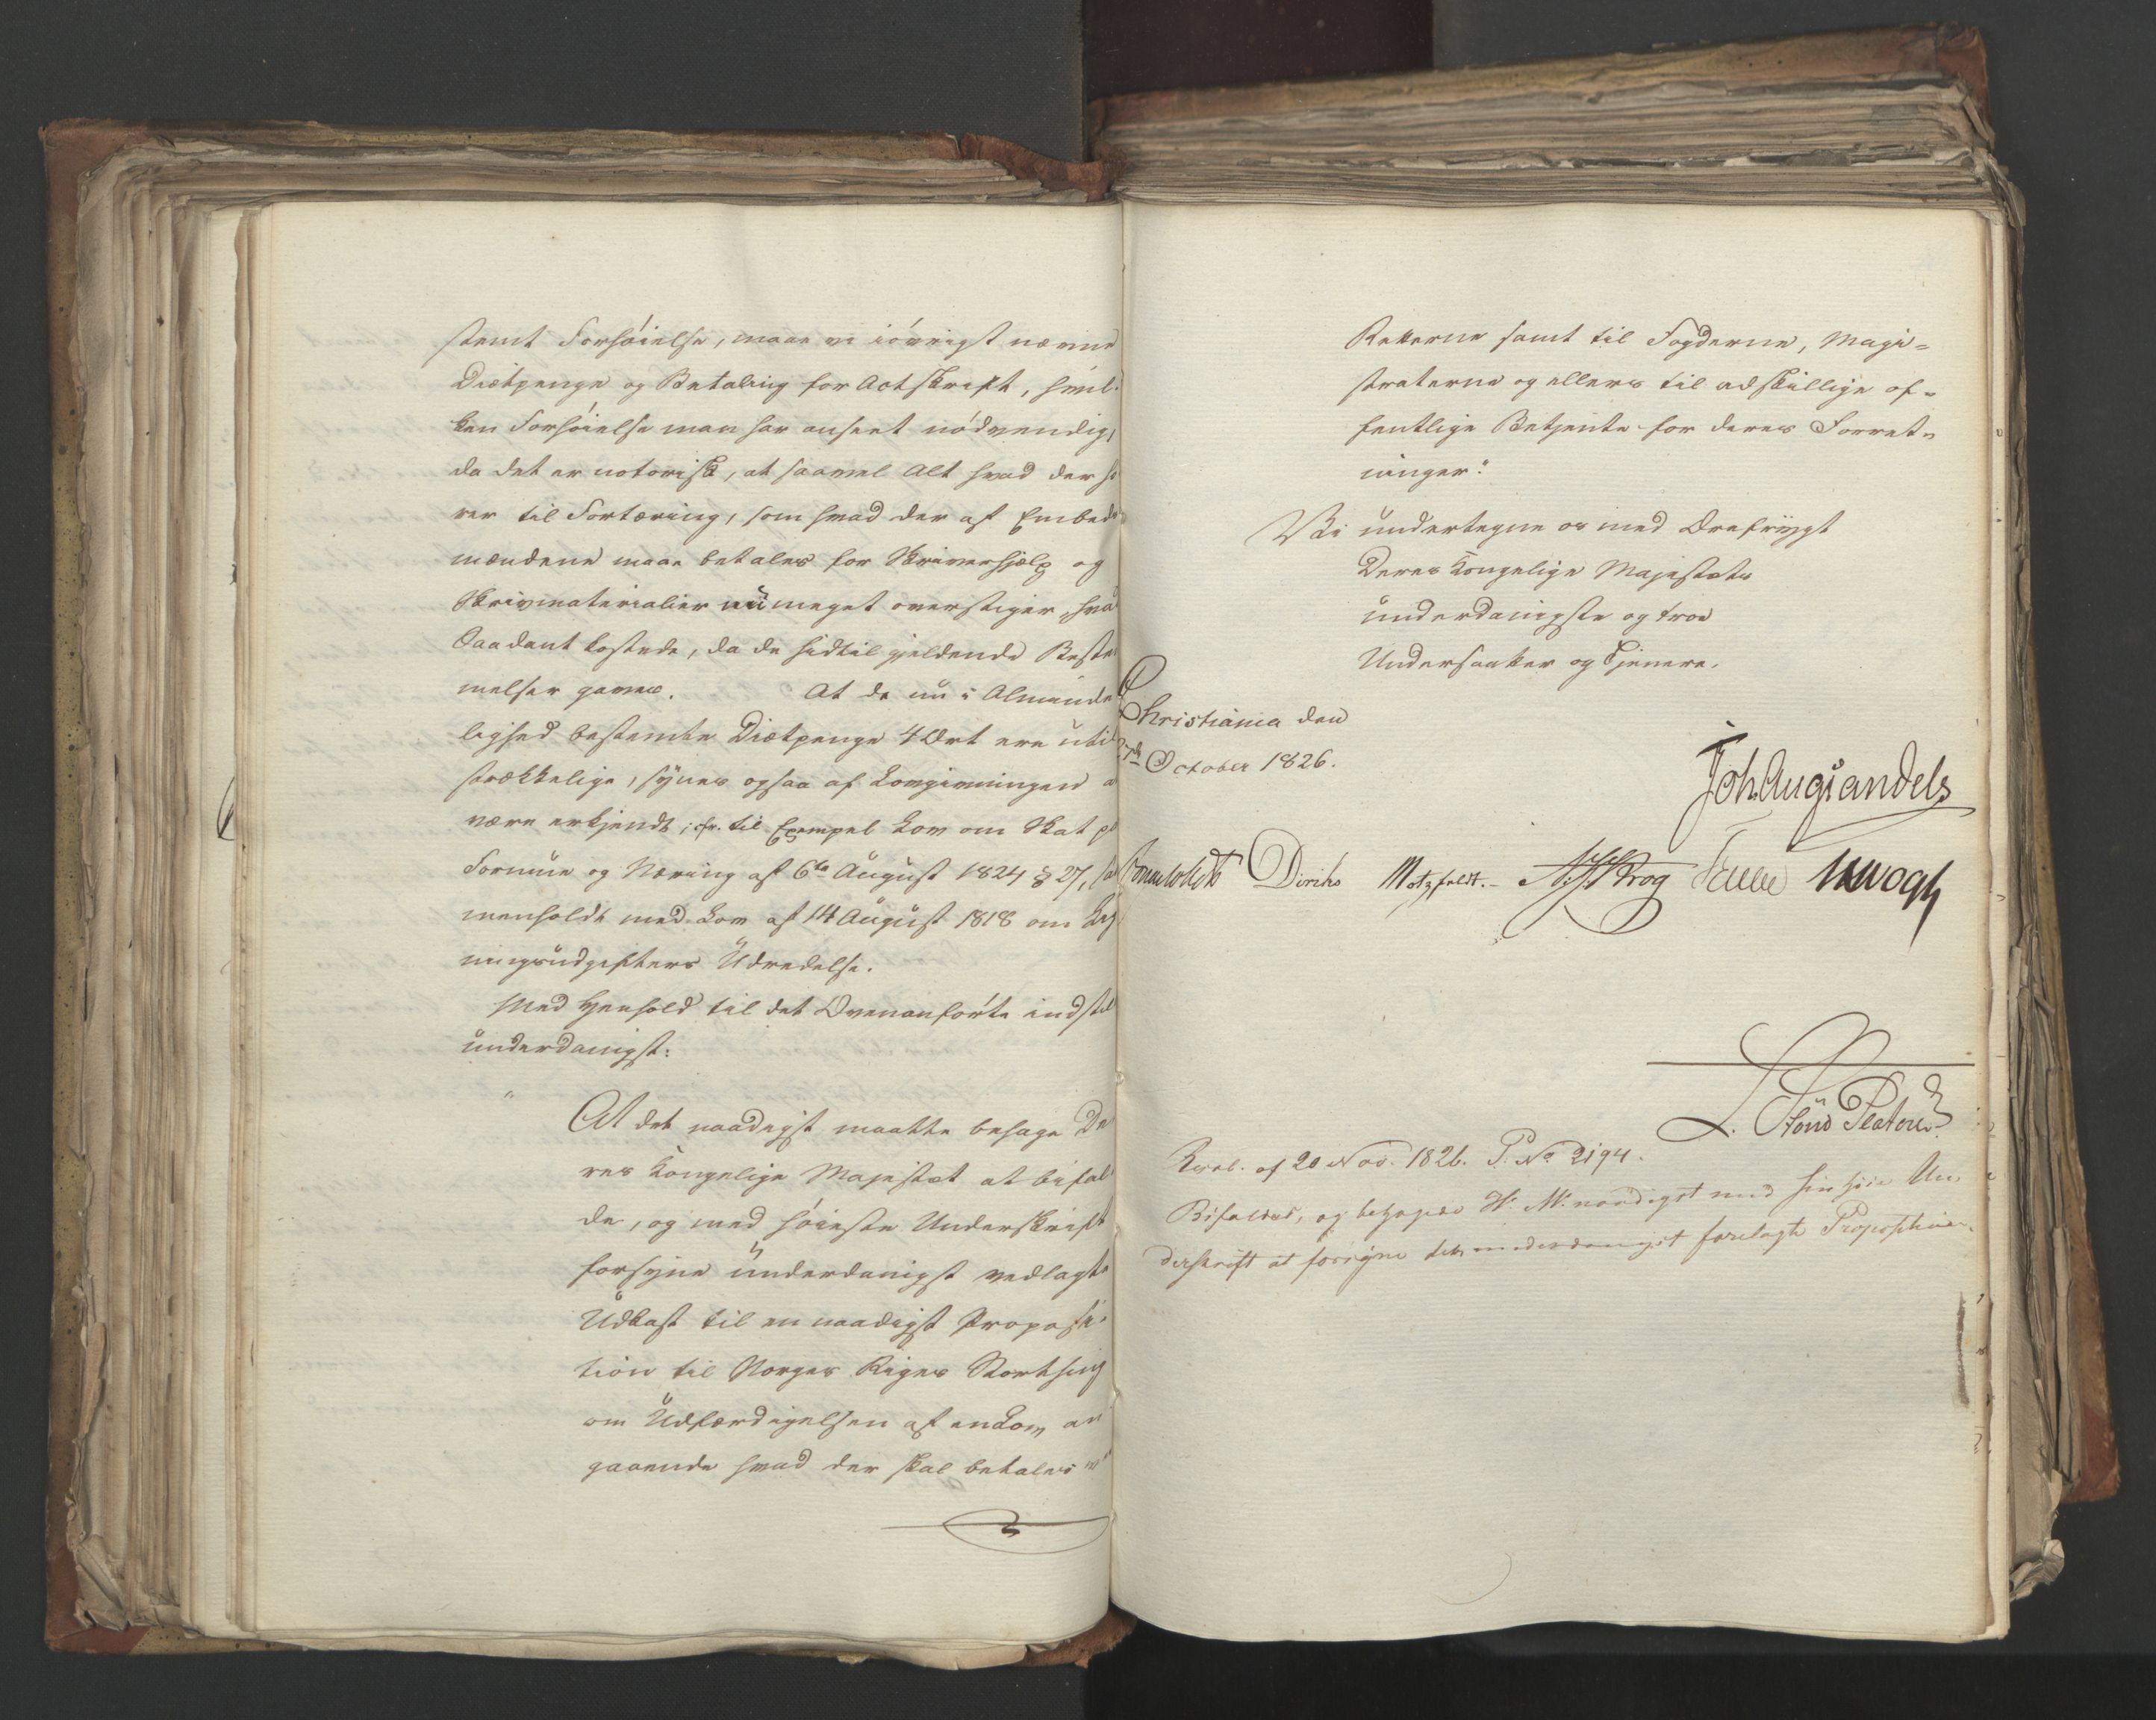 stemt Forhöielse, maae vi iövrigt nævne
Diætpenge og Betaling for Actskrift, hvil-
ken Forhöielse man har anseet nödvendig,
da det er notorisk, at saavel Alt hvad der hö
rer til Fortæring, som hvad der af Embeds
mændene maae betales for Skriverhjælp og
Skrivmaterialier nu meget overstiger, hvad
Saadant kostede, da de hidtil gjeldende Bestem
melser gaves. At de nu i Alminde
lighed bestemte Diætpenge 4 Ort ere util
strækkelige, synes ogsaa af Lovgivningen a
være erkjendt; cfr. til Exempel Lov om Skat på
Formue og Næring af 6te August 1824 § 27, sam
menholdt med Lov af 14 August 1818 om Lig
ningsudgifters Udredelse.
Med Henhold til det Ovenanförte indstil
underdanigst:
" At det naadigst maatte behage De
res Kongelige Majestæt at bifal
de, og med höieste Underskrift
forsyne underdanigst vedlagte
Udkast til en naadigst Proposi-
tion til Norges Riges Storthing
om Udfærdigelsen af en Lov an
gaaende hvad der skal betales ved
Retterne samt til Fogderne, Magi-
straterne og ellers til adskillige of-
fentlige Betjente for deres Forret-
ninger."
Vi undertegne os med Ærefrygt
Deres Kongelige Majestæts
underdanigste og troe
Undersaatter og Tjenere.
Christiania den
October 1826.
Joh. Aug. Sandels
Sommerhielm Diriks Motzfeldt. Krog Fasting JHVogt
L. Stoud Platou
Resol. af 20 Nov. 1826. P. No 2194.
Bifaldes, og behages H. M. naadigst med sin höie Un-
derskrift at forsyne den underdanigst forelagte Proposition.